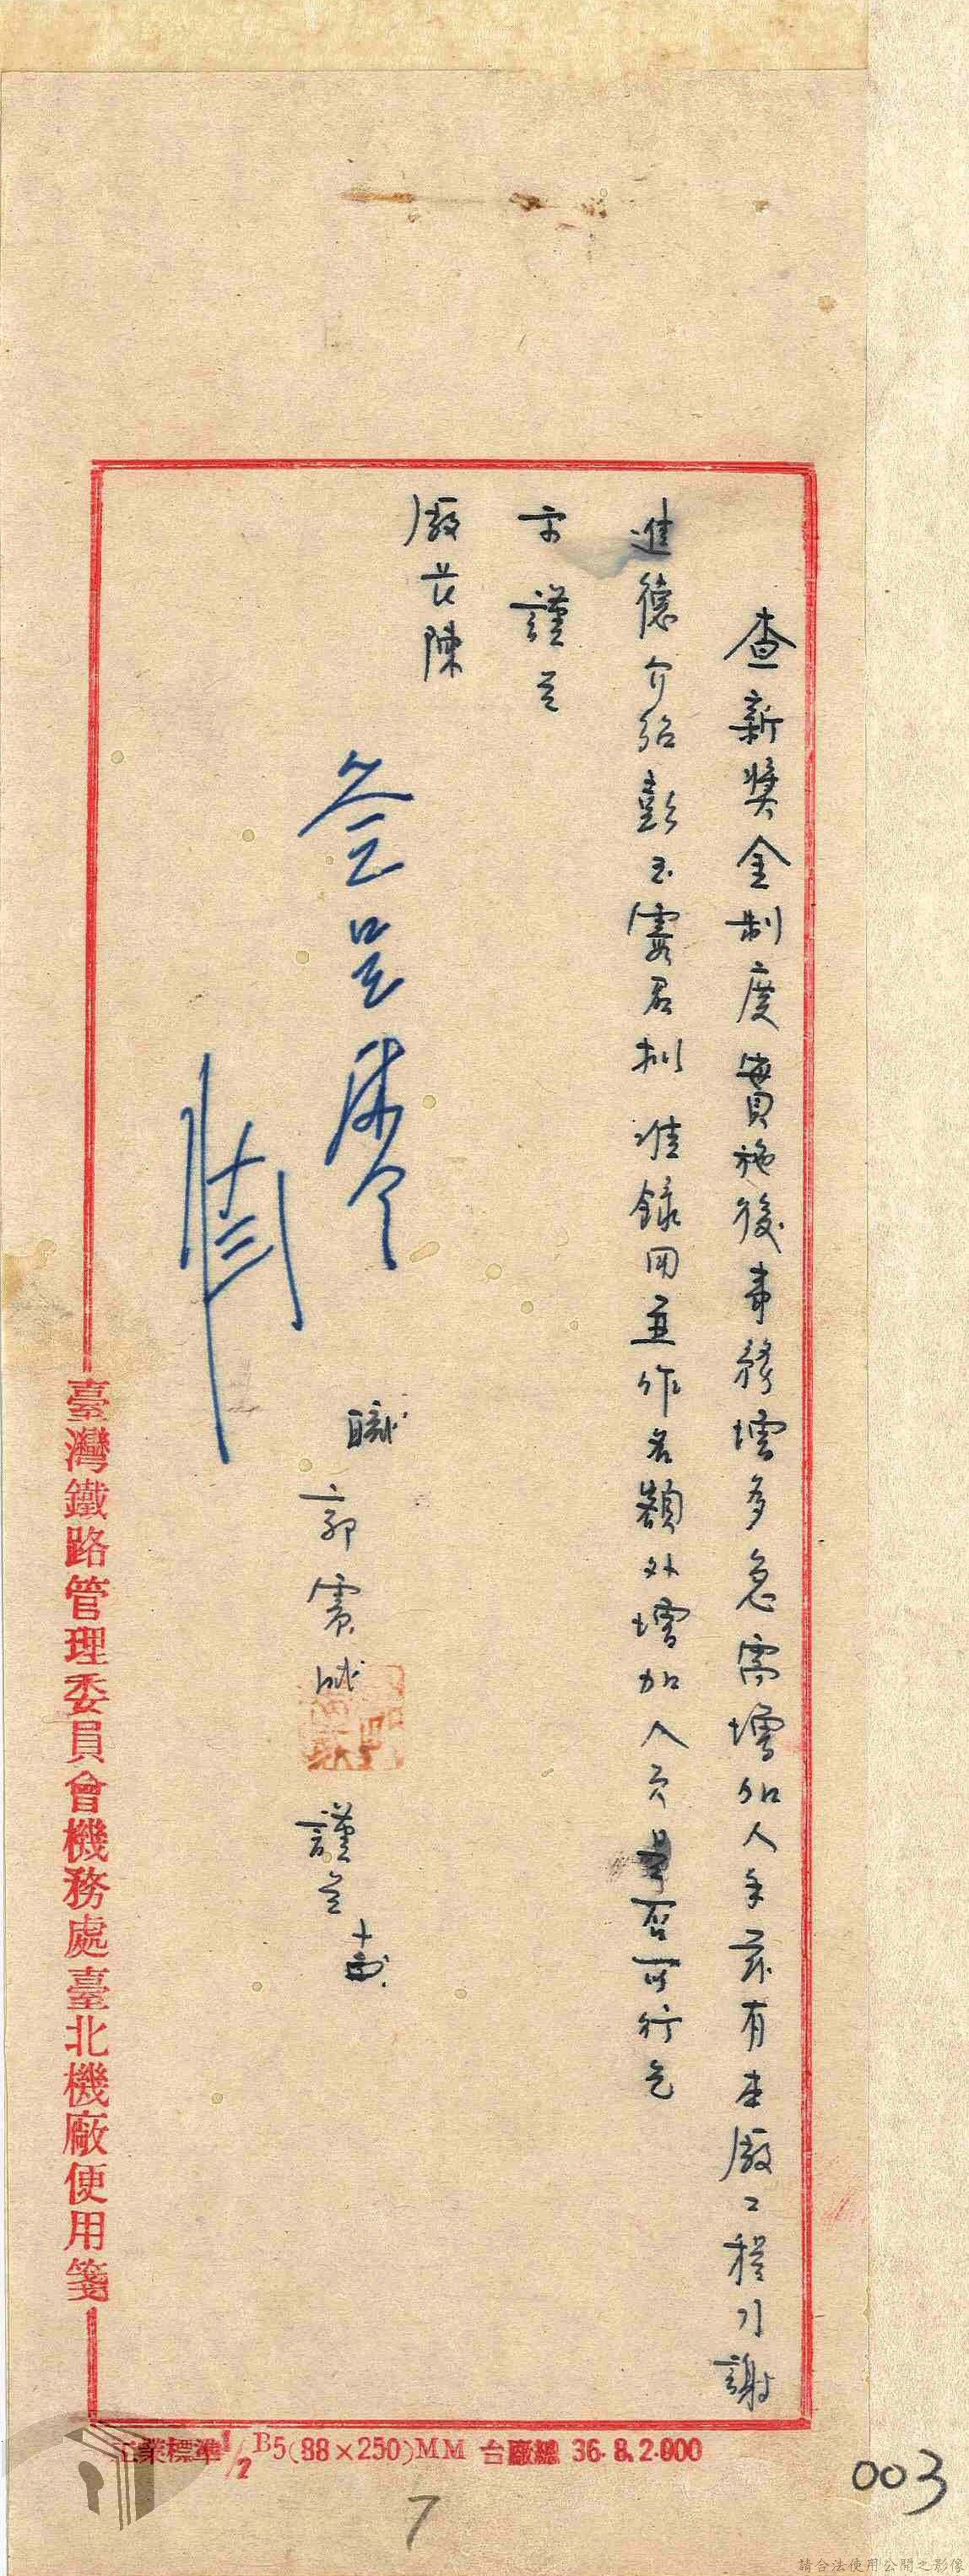 查新獎金制度實施後事務增多急需增加人手茲有本廠工程司謝
進德介紹彭玉霞君擬准錄用並作名額外增加人員是否可行乞
示謹呈
廠長陳
簽呈
職郭實斌謹呈
臺灣鐵路管理委員會機務處臺北機廠便用箋
工業標準1/2B5(88×250)MM 台廠總 36.8.2.000
7
003
請合法使用公開之影像